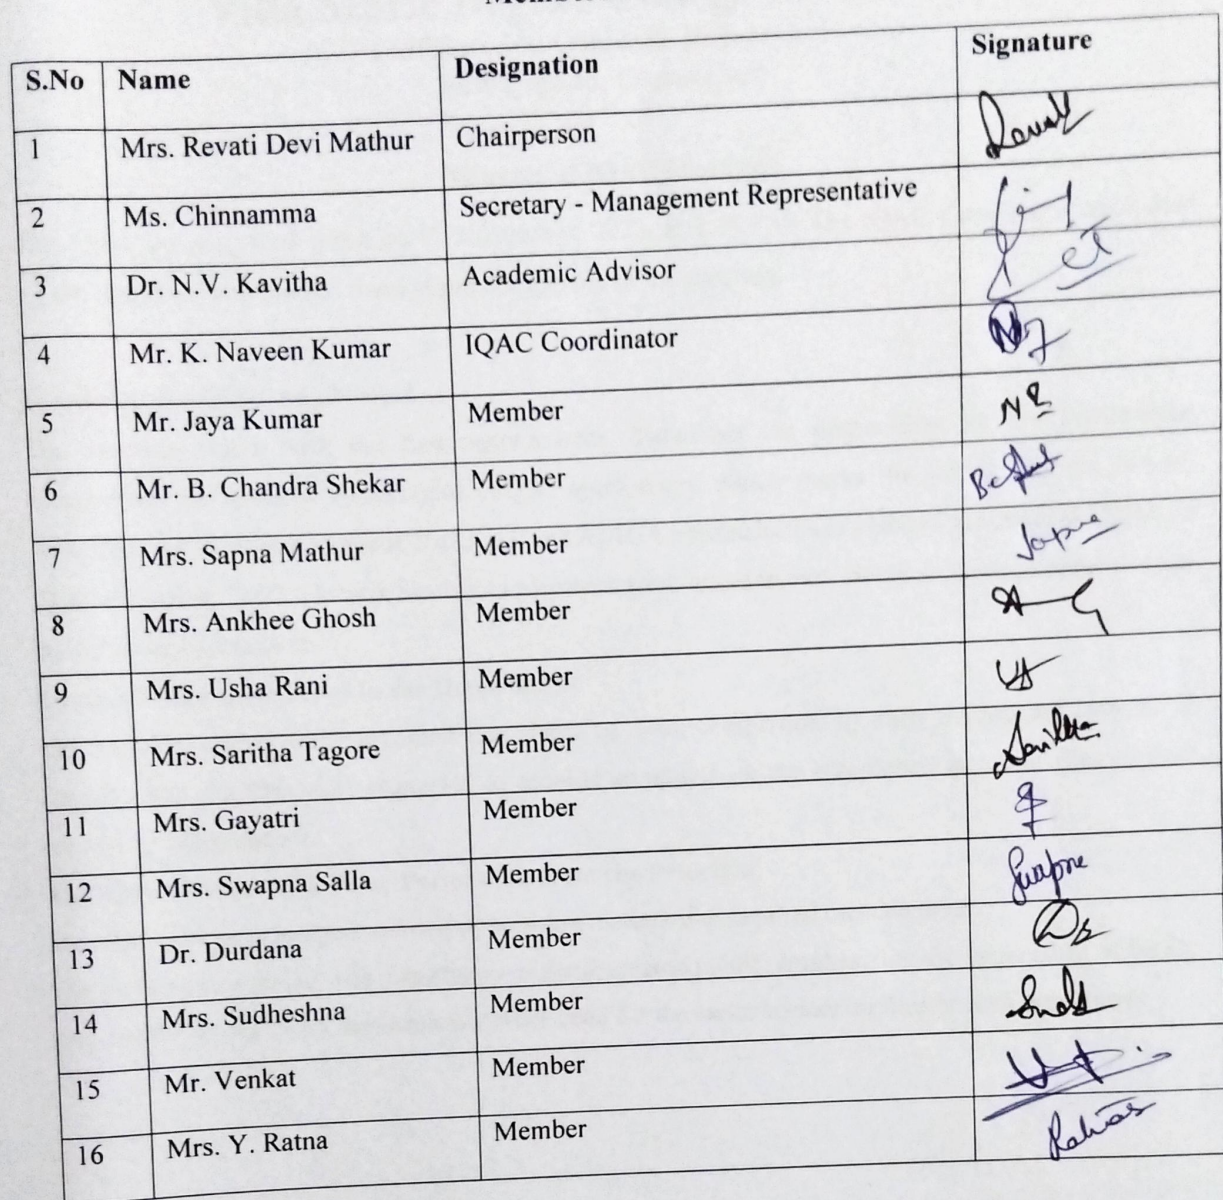 S.No Name Designation Signature
1 Mrs. Revati Devi Mathur Chairperson
2 Ms. Chinnamma Secretary - Management Representative
3 Dr. N.V. Kavitha Academic Advisor
4 Mr. K. Naveen Kumar IQAC Coordinator
5 Mr. Jaya Kumar Member
6 Mr. B. Chandra Shekar Member
7 Mrs. Sapna Mathur Member
8 Mrs. Ankhee Ghosh Member
9 Mrs. Usha Rani Member
10 Mrs. Saritha Tagore Member
11 Mrs. Gayatri Member
12 Mrs. Swapna Salla Member
13 Dr. Durdana Member
14 Mrs. Sudheshna Member
15 Mr. Venkat Member
16 Mrs. Y. Ratna Member